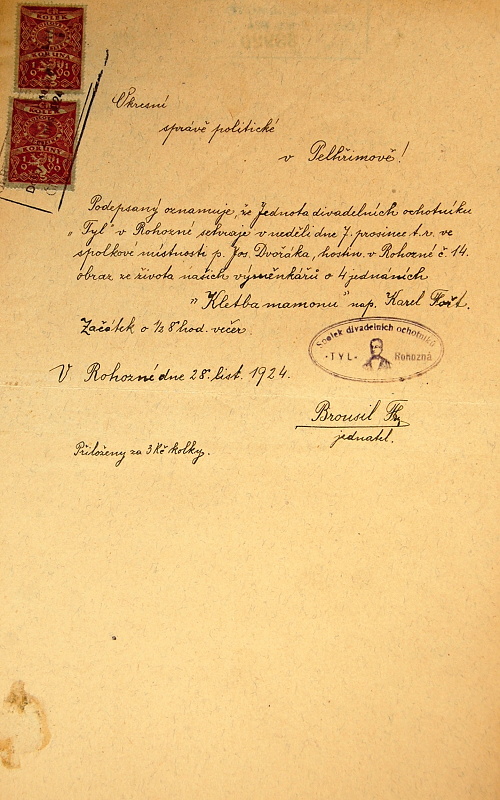 Okresní
správě politické
v Pelhřimově!
Podepsaný oznamuje, že Jednota divadelních ochotníku
„Tyl" v Rohozné sehraje v neděli dne 7. prosince t. r. ve
spolkové místnosti p. Jos. Dvořáka, hostin. v Rohozné č. 14.
obraz ze života našich výměnkářů o 4 jednáních
„Kletba mamonu" nap. Karel Fořt.
Začátek o 1/2 8 hod. večer.
Spolek divadelních ochotníků
-TYL- Rohozná
V Rohozné dne 28. list. 1924.
Brousil
jednatel.
Přiloženy za 3 Kč kolky.
KOLEK
KORUNA
KOLEK
2
KORUNY